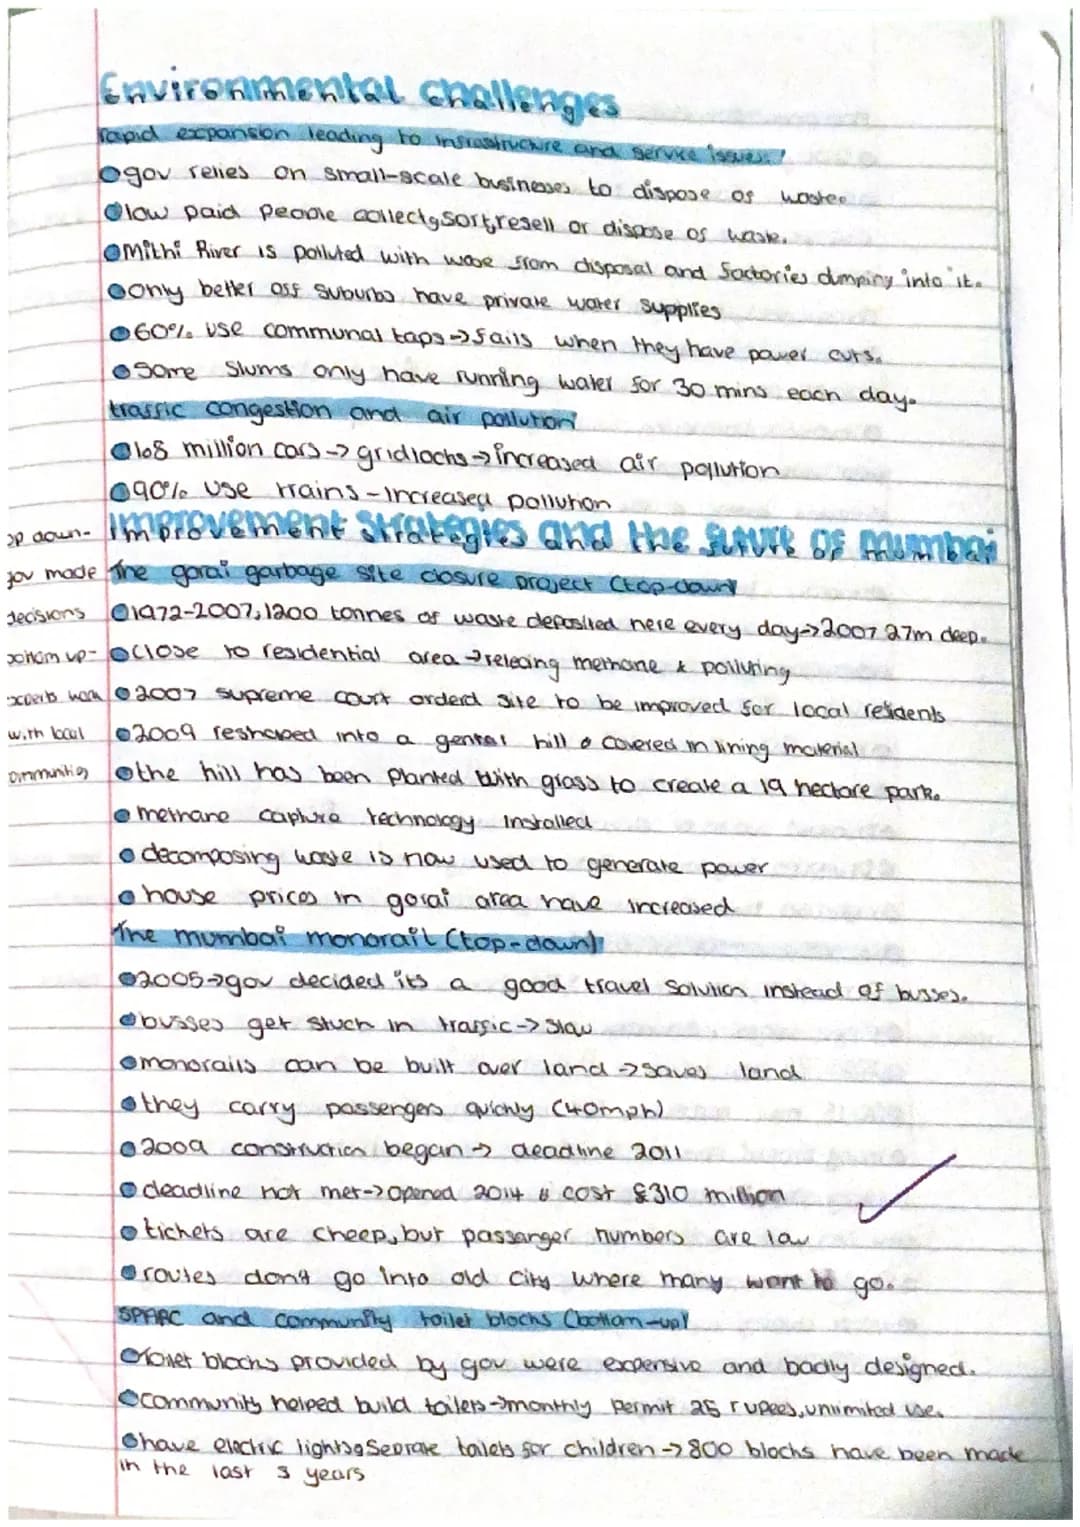 Environmental challenges
rapid expansion leading to infrastructure and service issues:
gov relies on small-scale businesses to dispose of waste.
low paid people collect, sort, resell or dispose of waste.
Mithi River is polluted with waste from disposal and factories dumping into it.
only better off suburbs have private water supplies
60% use communal taps → fails when they have power cuts.
Some Slums only have running water for 30 mins each day.
traffic congestion and air pollution
1.8 million cars → gridlocks → increased air pollution
90% use trains - increased pollution
Improvement Strategies and the future of mumbai
op down-
gov made
decisions
bottom up-
experts work
with local
ommunities
The gorai garbage site closure project (top-down)
1972-2007, 1200 tonnes of waste deposited here every day → 2007 27m deep.
close to residential area → relecing methane & polluting
2007 supreme court orderd site to be improved for local residents
2009 reshaped into a gental hill & covered in lining material
the hill has been planted with grass to create a 19 hectare park.
methane capture technology installed
decomposing waste is now used to generate power
house prices in gorai area have increased
The mumbai monorail (top-down)
2005 → gov decided its a good travel solution instead of busses.
busses get stuck in traffic → slow
monorails can be built over land → saves land
they carry passengers quickly (40mph)
2009 construction began → deadline 2011
deadline not met → opened 2014 & cost £310 million
tickets are cheep, but passanger numbers are low
routes don't go into old city where many want to go.
SPARC and community toilet blocks (bottom-up)
Toilet blocks provided by gov were expensive and badly designed.
community helped build toilets → monthly permit 25 rupees, unlimited use.
have electric lights & Seprate toilets for children → 800 blocks have been made
in the last 3 years